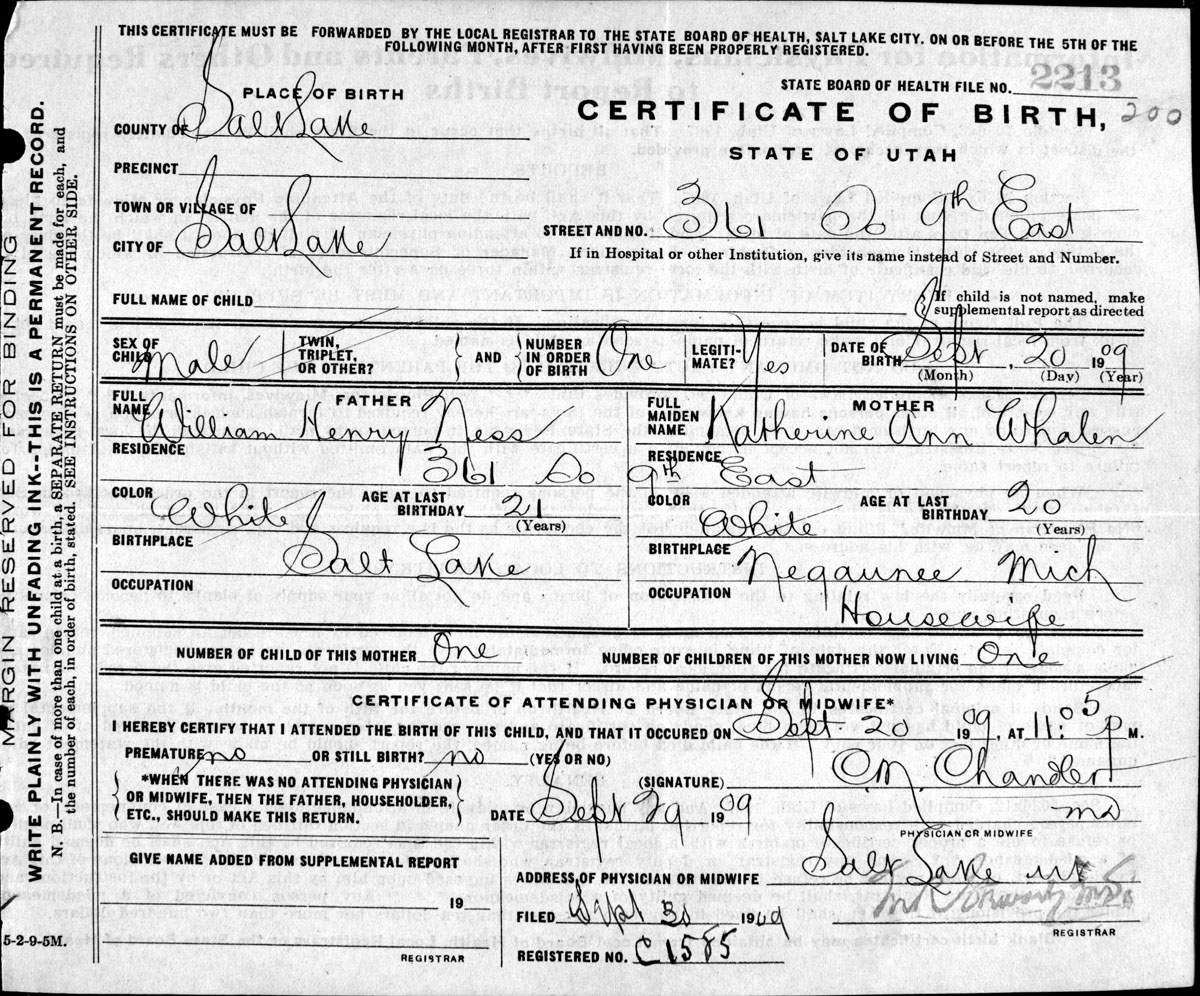 THIS CERTIFICATE MUST BE FORWARDED BY THE LOCAL REGISTRAR TO THE STATE BOARD OF HEALTH, SALT LAKE CITY. ON OR BEFORE THE 5TH OF THE
FOLLOWING MONTH, AFTER FIRST HAVING BEEN PROPERLY REGISTERED.
STATE BOARD OF HEALTH FILE NO. 2213
PLACE OF BIRTH
CERTIFICATE OF BIRTH, 200
COUNTY OF Salt Lake
STATE OF UTAH
PRECINCT
TOWN OR VILLAGE OF
STREET AND NO. 361 So 9th East
CITY OF Salt Lake
If in Hospital or other Institution, give its name instead of Street and Number.
FULL NAME OF CHILD
{If child is not named, make
supplemental report as directed
SEX OF CHILD Male
TWIN, TRIPLET, OR OTHER?
} AND {
NUMBER IN ORDER OF BIRTH One
LEGITIMATE? Yes
DATE OF BIRTH Sept, 20 1909
(Month) (Day) (Year)
FATHER
FULL NAME William Henry Ness
MOTHER
FULL MAIDEN NAME Katherine Ann Whalen
RESIDENCE
RESIDENCE
361 So 9th East
COLOR White
AGE AT LAST BIRTHDAY 21
(Years)
COLOR White
AGE AT LAST BIRTHDAY 20
(Years)
BIRTHPLACE Salt Lake
BIRTHPLACE Negaunee Mich
OCCUPATION
OCCUPATION Housewife
NUMBER OF CHILD OF THIS MOTHER One
NUMBER OF CHILDREN OF THIS MOTHER NOW LIVING One
CERTIFICATE OF ATTENDING PHYSICIAN OR MIDWIFE*
I HEREBY CERTIFY THAT I ATTENDED THE BIRTH OF THIS CHILD, AND THAT IT OCCURED ON Sept 20 1909, AT 11:05 P M.
PREMATURE no OR STILL BIRTH? no (YES OR NO)
{*WHEN THERE WAS NO ATTENDING PHYSICIAN
OR MIDWIFE, THEN THE FATHER, HOUSEHOLDER,
ETC., SHOULD MAKE THIS RETURN.}
(SIGNATURE) C.M. Chandler
DATE Sept 29 1909
MD
PHYSICIAN OR MIDWIFE
GIVE NAME ADDED FROM SUPPLEMENTAL REPORT
ADDRESS OF PHYSICIAN OR MIDWIFE Salt Lake ut
19
FILED Sept 30 1909
REGISTRAR
REGISTRAR
REGISTERED NO. C1585
5-2-9-5M.
MARGIN RESERVED FOR BINDING
WRITE PLAINLY WITH UNFADING INK--THIS IS A PERMANENT RECORD.
N. B.—In case of more than one child at a birth, a SEPARATE RETURN must be made for each, and
the number of each, in order of birth, stated. SEE INSTRUCTIONS ON OTHER SIDE.